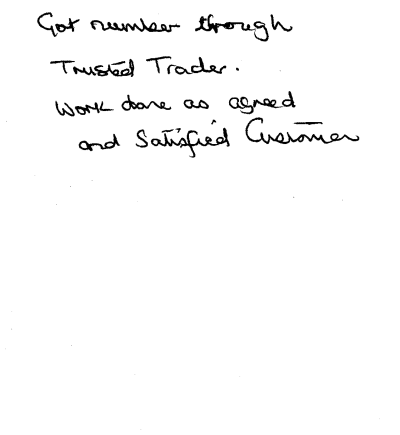 Got number through
Trusted Trader.
Work done as agreed
and Satisfied Customer